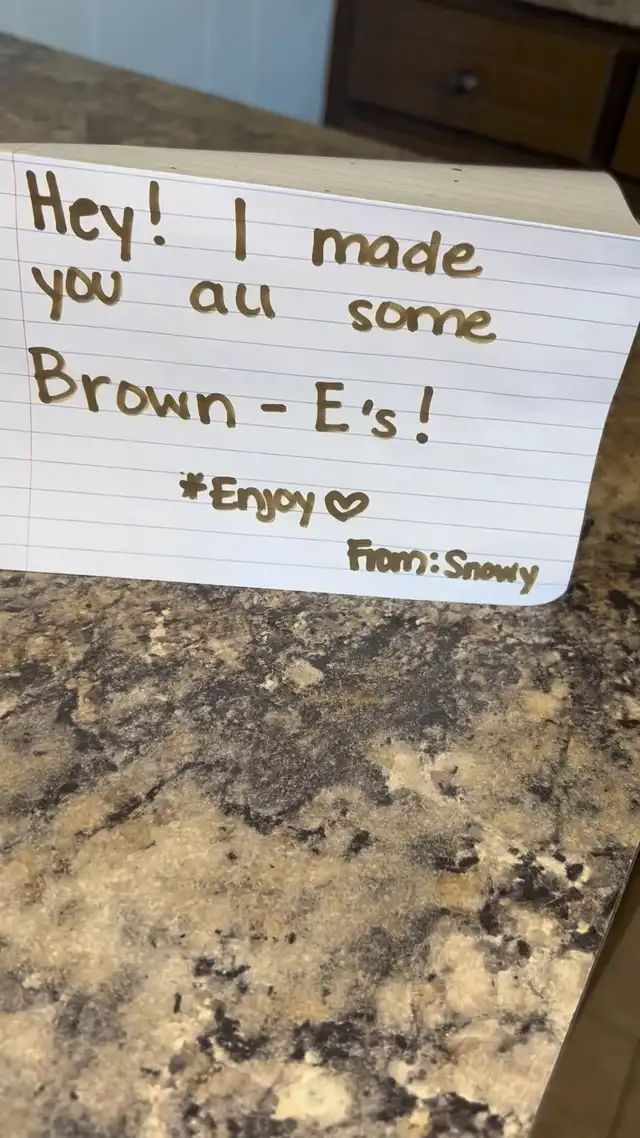 Hey! I made
you all some
Brown - E's!
*Enjoy♡
From: Snowy